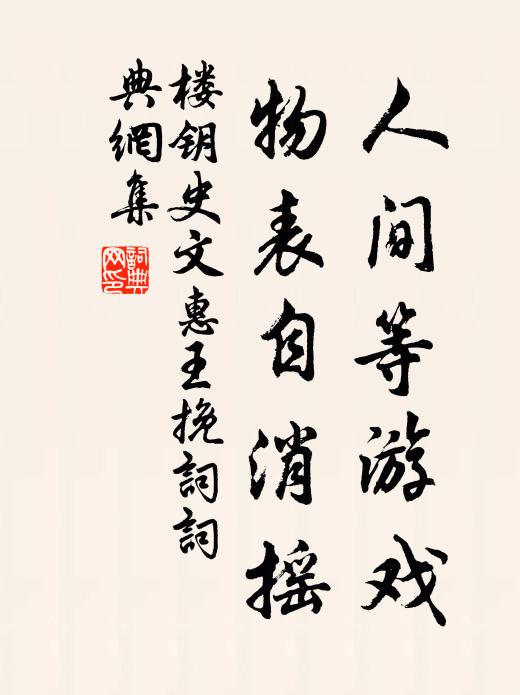 人间等游戏
物表自消摇
楼钥史文惠王挽詞詞
典網集
詞典网印